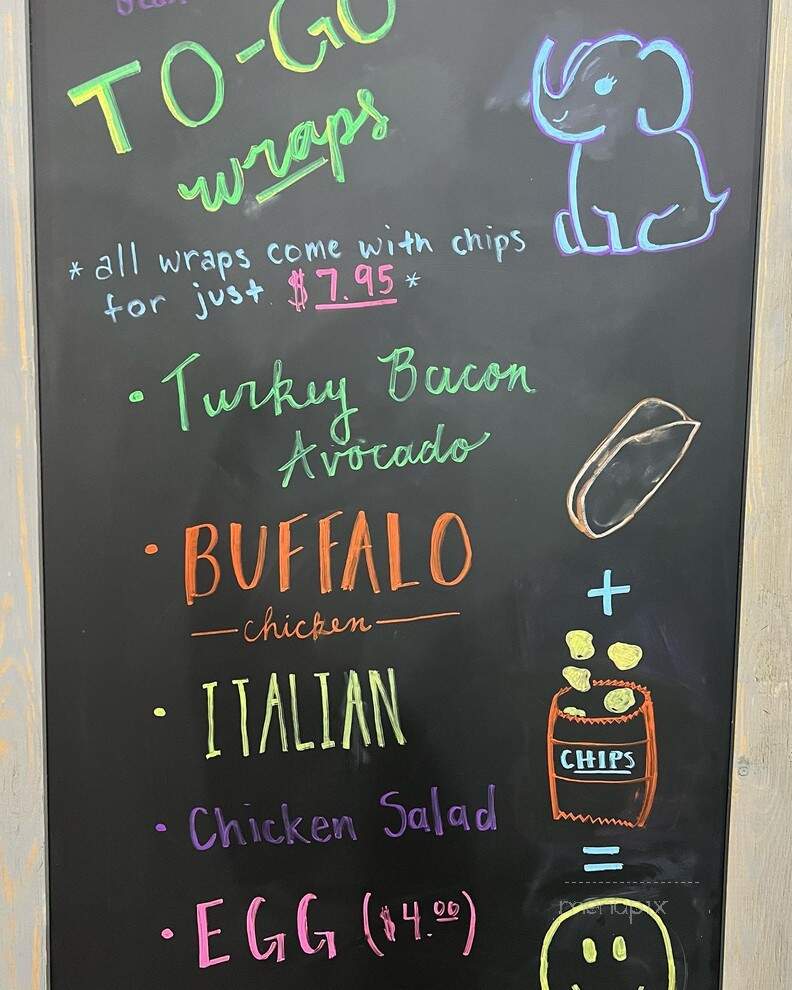 TO-GO
wraps
* all wraps come with chips
for just $7.95 *
• Turkey Bacon
Avocado
• BUFFALO
— chicken —
• ITALIAN
• Chicken Salad
• EGG ($4.00)
+
CHIPS
=
menupix